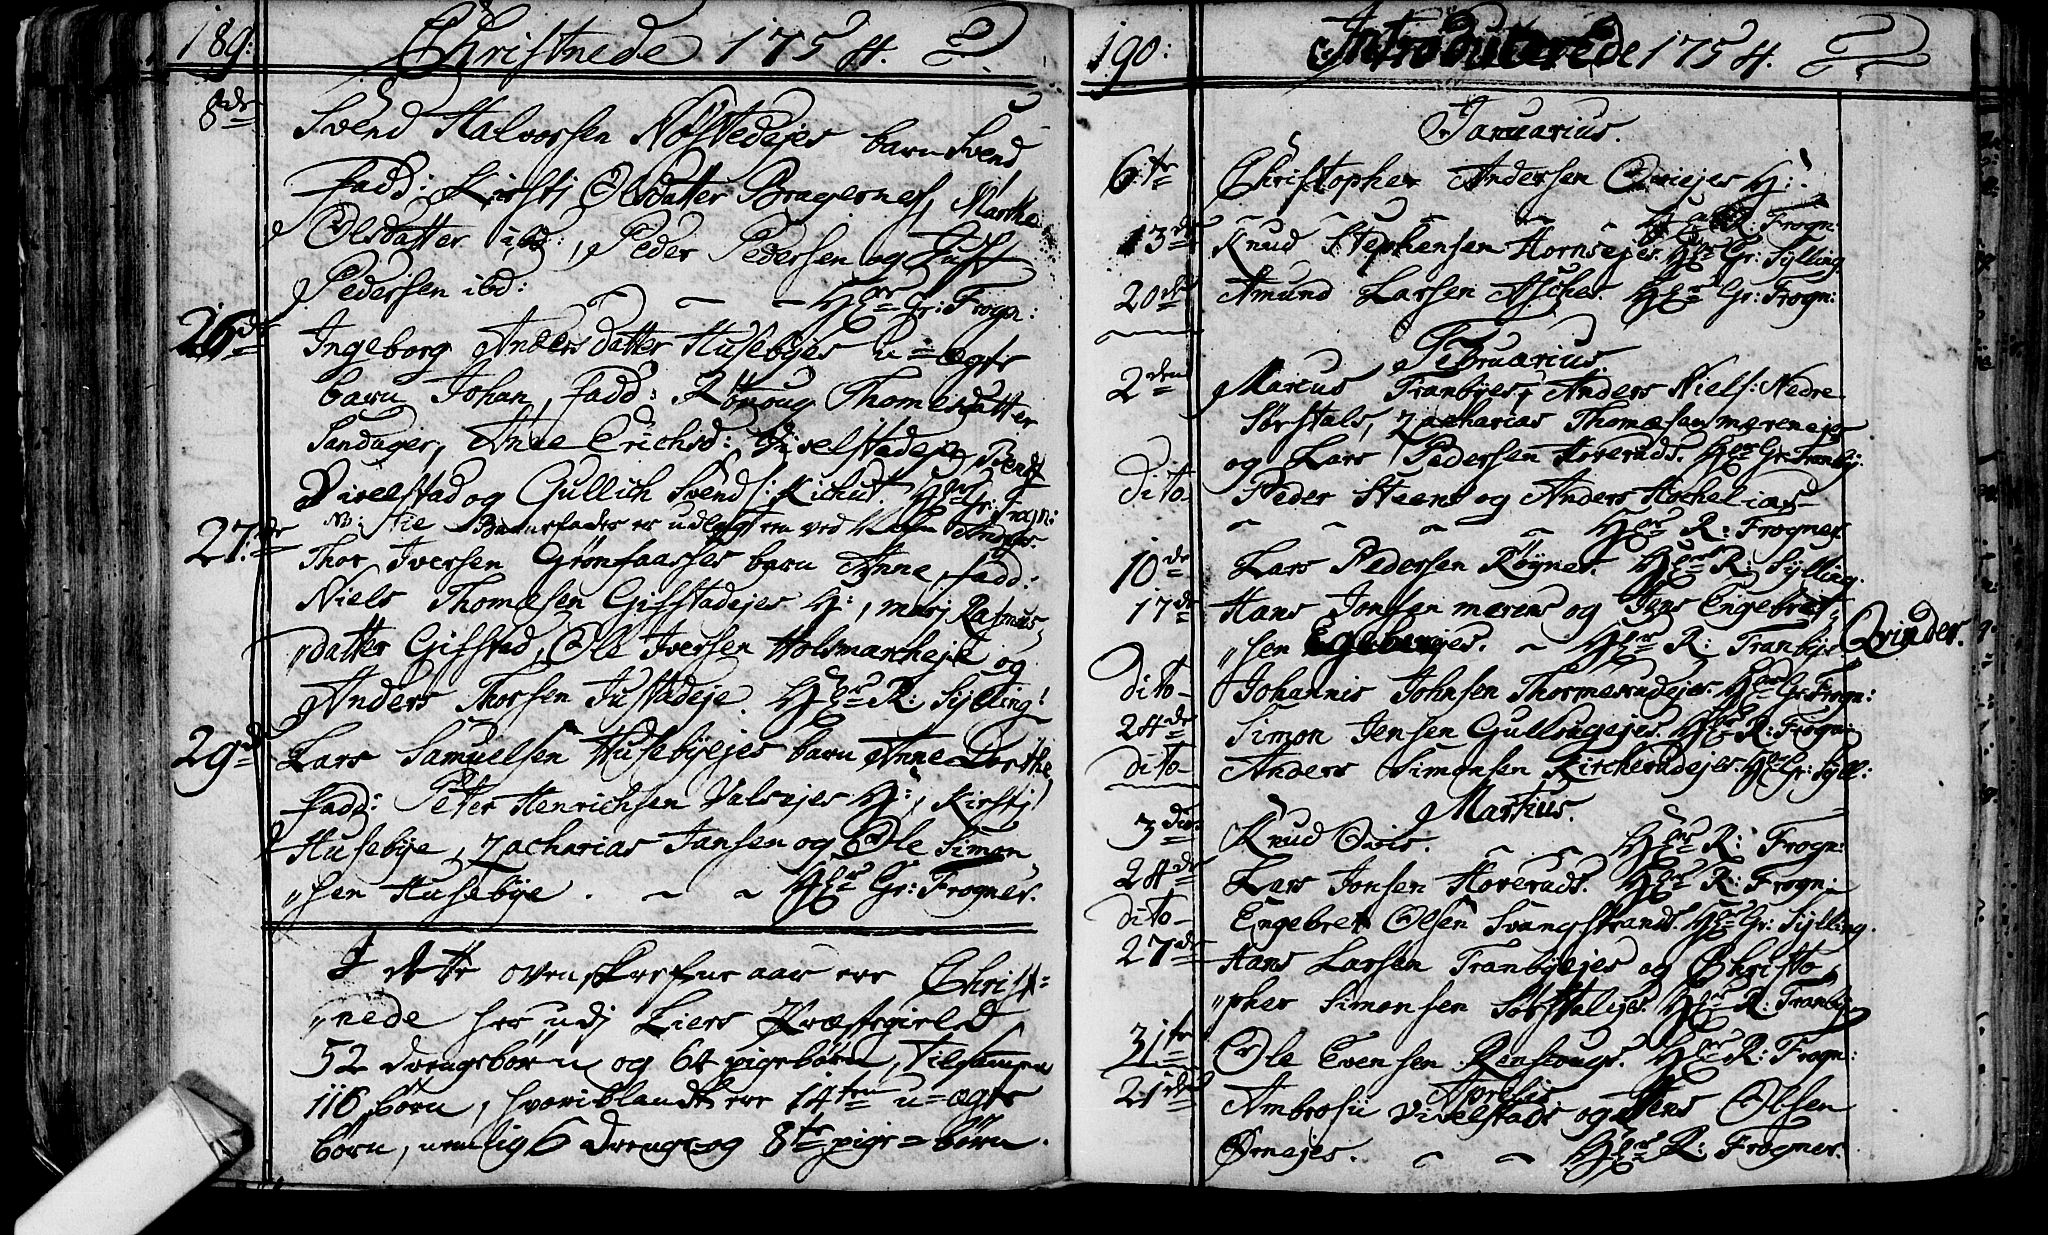 189:
Christnede 1754.
8de
Svend Halvorsen Nøstedejes barn Svend
Fadd: Kirstj Olsdatter Bragernes, Marthe
Olsdatter ibd:, Peder Pedersen og
Pedersen ibd: Hr Gr: Frogn:
26de
Ingeborg Andersdatter Husebyes u-ægte
barn Johan, Fadd: Rönnoug Thomesdatter
Sandager, Anne Erichsd: Viselstadeje, Svend
Viselstad og Gullich Svends: Hr Gr: Frogn:
NB: Barnefader er udlagt ved Andrs.
27de
Thor Iversen Grønsaasses barn Anne, Fadd:
Niels Thomesen Gifstadejes H:, marj Rasmus-
datter Gifstad, Ole Iversen Holsmarcheje og
Anders Thorsen Justadeje. Hr R: Sylling:
29de
Lars Samuelsen Husebyejes barn Anne Dorthe
Fadd: Peter Henrichsen Valsejes H:, Kirstj
Husebye, Zacharias Jansen og Ole Simon
sen Husebye. Hr Gr: Frogner.
I dette ovenskrefne aar ere Christ-
nede her udj Liers Præstegield
52 drengebørn og 64 pigebørn, tilsamen
116 børn, hvoriblandt ere 14ten u-ægte
børn, nemlig 6 drenge og 8te pige-børn.
190:
Introducerede 1754.
Januarius.
6te Christopher Andersen H:
Hr R: Frogn:
13de Knud Stephensen Hornsejes. Hr Gr: Sylling
20de Amund Larsen Asches. Hr Gr: Frogn:
Februarius.
2den Marcus Tranbyes, Anders Niels: Nedre
Sørstals, Zacharias Thomesen mærenejes
og Lars Pedersen Hoveruds. Hr Gr: Tranby.
Dito Peder Steens og Anders Hochelias
Hr R: Frogner
10de Lars Pedersen Røynes. Hr R: Sylling.
17de Hans Jonsen mærens og Jens Engebret-
sen Egebergejes. Hr R: Tranbye. Qvinder.
Dito Johannis Johnsen Thormerudejes. Hr Gr: Frogn:
24de Simon Jensen Gullougejes. Hr R: Frogn:
Dito Anders Simonsen Kircherudejes. Hr Gr: Syll:
Martius.
3die Knud Hr R: Frogn:
24de Lars Jonsen Hoveruds. Hr R: Frogn:
Dito Engebret Olsen Svangstrands. Hr Gr: Sylling.
27de Hans Larsen Tranbyejes og Christo
pher Simonsen Sørstalejes. Hr R: Tranby
31te Ole Evensen Rensvougs. Hr R: Frogn:
Aprilis
21de Ambrosii Viselstads og Jens Olsen
Ørnejes. Hr R: Frogner.